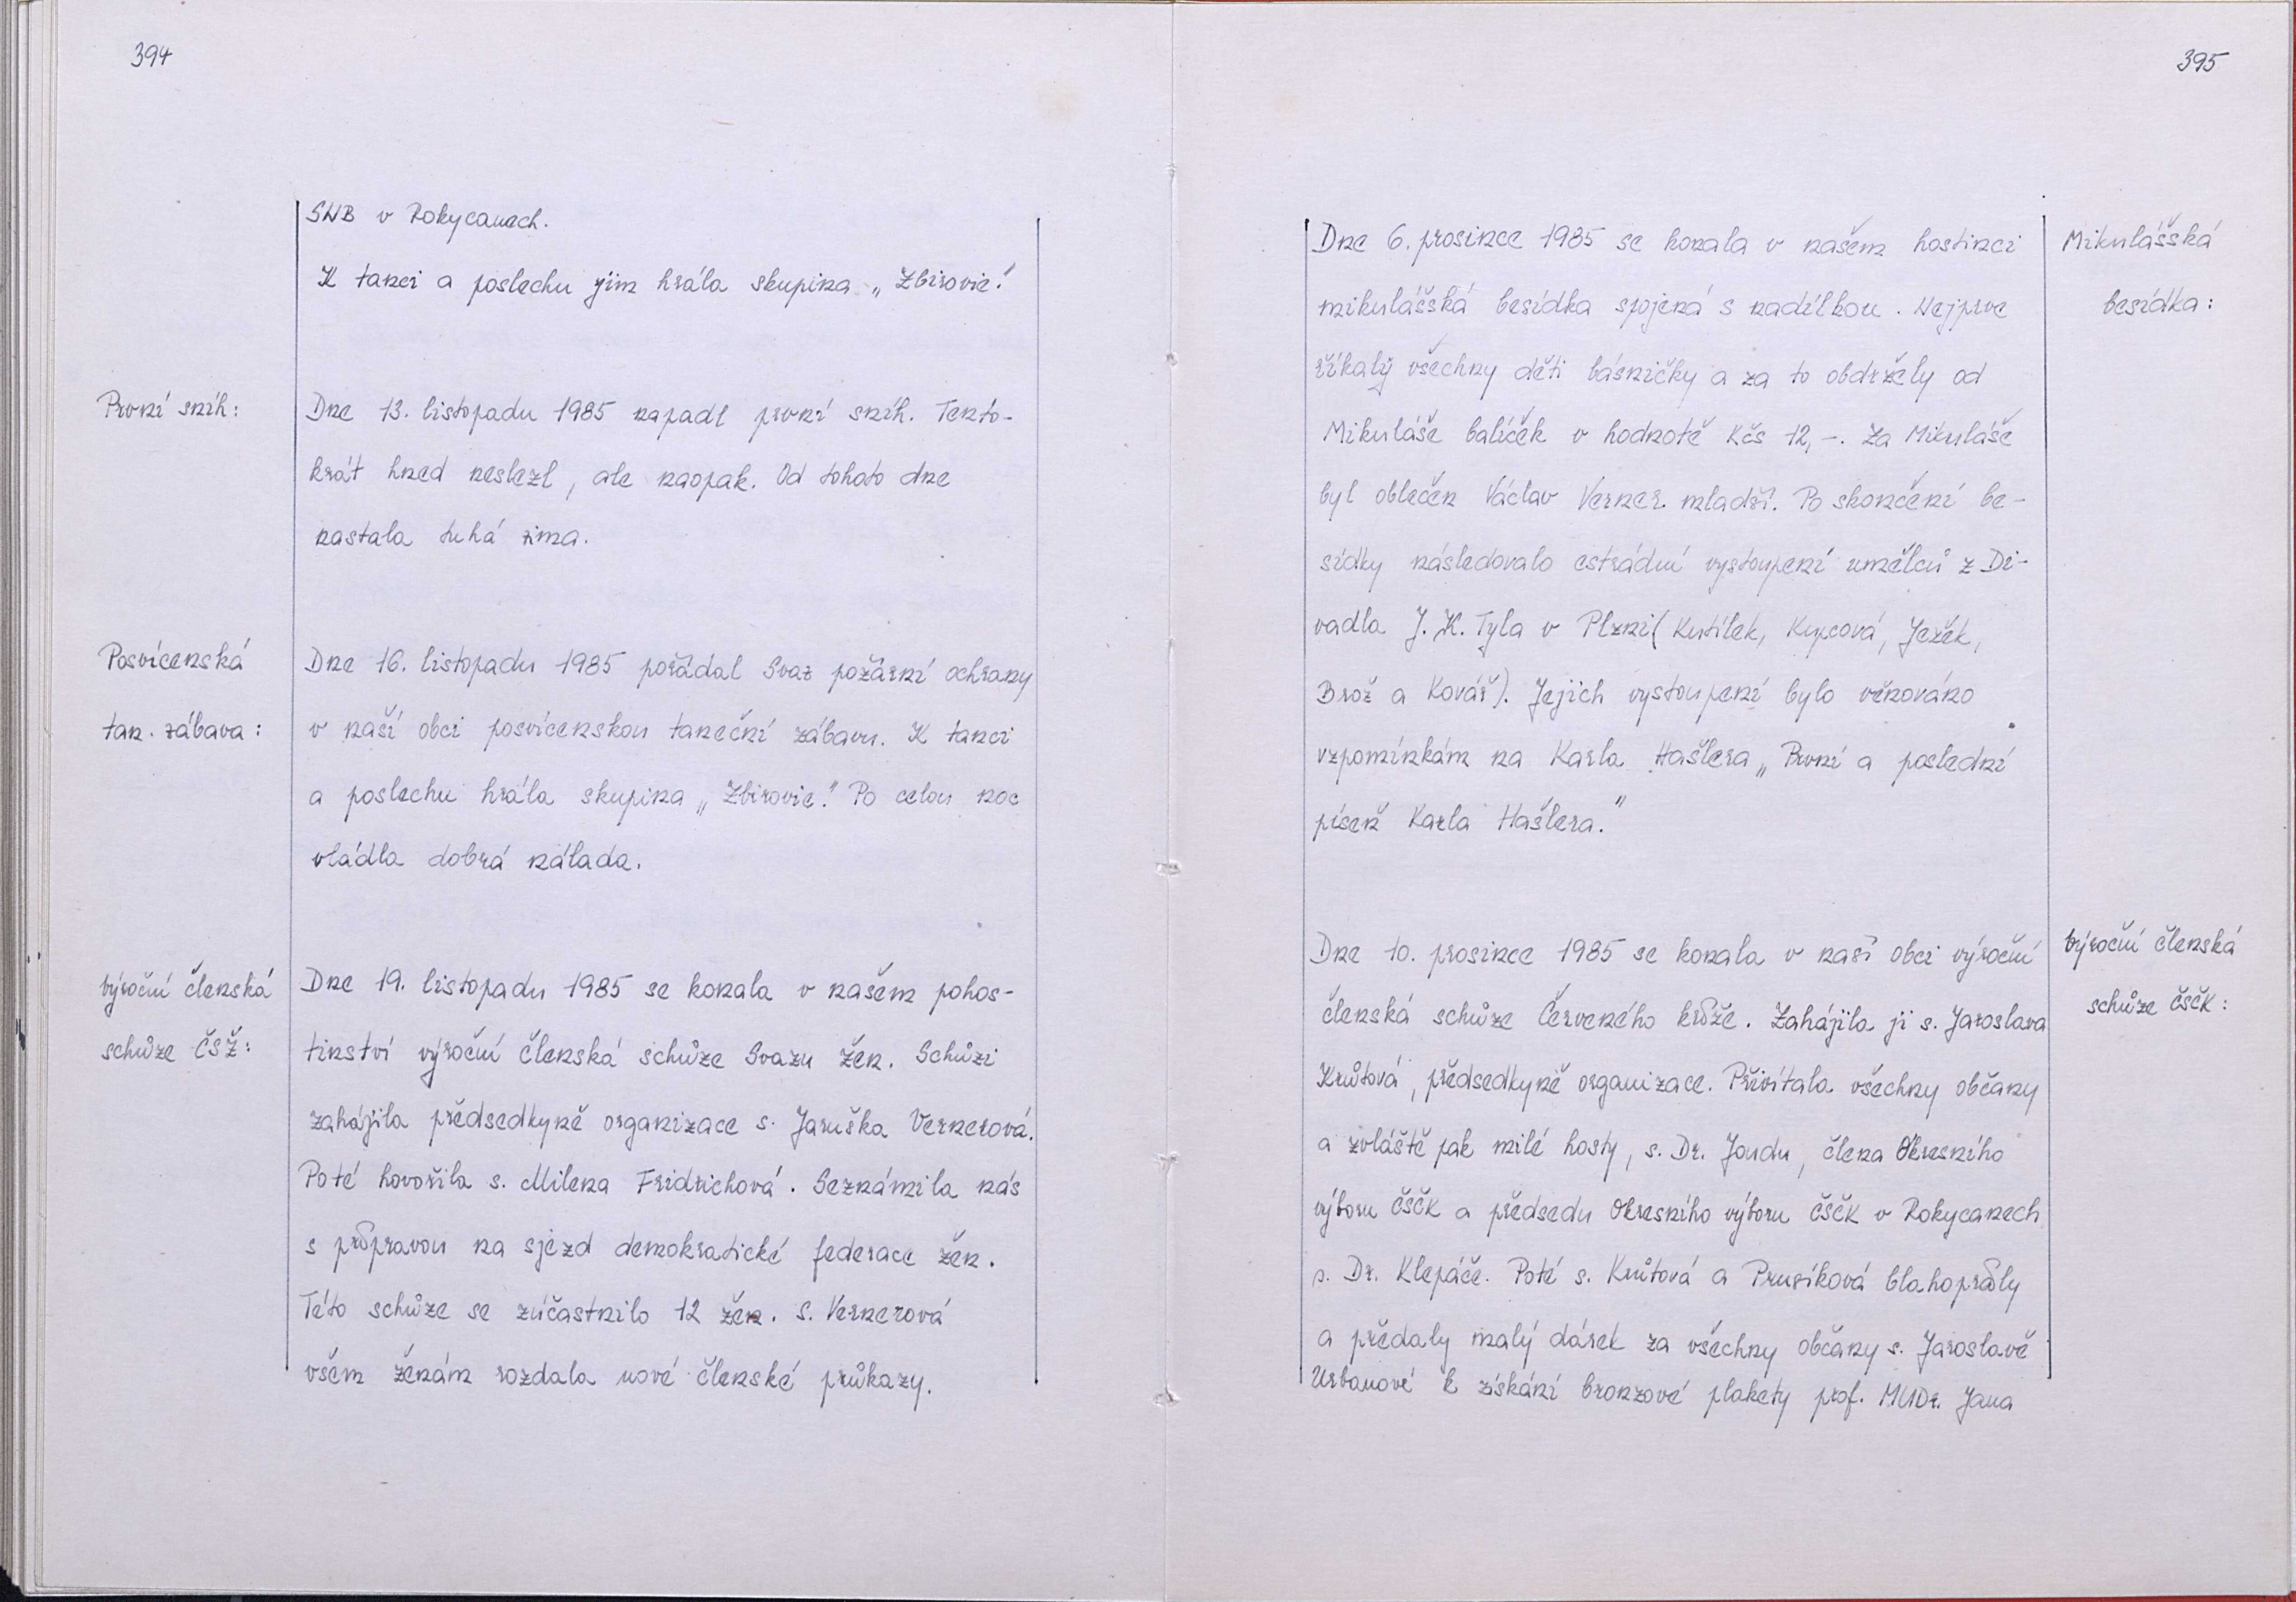 394
SNB v Rokycanech.
K tanci a poslechu jim hrála skupina „Zbirovie."
První sníh:
Dne 13. listopadu 1985 napadl první sníh. Tento-
krát hned neslezl, ale naopak. Od tohoto dne
nastala tuhá zima.
Posvícenská
tan. zábava:
Dne 16. listopadu 1985 pořádal Svaz požární ochrany
v naší obci posvícenskou taneční zábavu. K tanci
a poslechu hrála skupina „Zbirovie." Po celou noc
vládla dobrá nálada.
Výroční členská
schůze ČSŽ:
Dne 19. listopadu 1985 se konala v našem pohos-
tinství výroční členská schůze Svazu žen. Schůzi
zahájila předsedkyně organizace s. Jaruška Vernerová.
Poté hovořila s. Milena Fridrichová. Seznámila nás
s přípravou na sjezd demokratické federace žen.
Této schůze se zúčastnilo 12 žen. S. Vernerová
všem ženám rozdala nové členské průkazy.
395
Mikulášská
besídka:
Dne 6. prosince 1985 se konala v našem hostinci
mikulášská besídka spojená s nadílkou. Nejprve
říkaly všechny děti básničky a za to obdržely od
Mikuláše balíček v hodnotě Kčs 12,-. Za Mikuláše
byl oblečen Václav Verner mladší. Po skončení be-
sídky následovalo estrádní vystoupení umělců z Di-
vadla J. K. Tyla v Plzni (Kutílek, Kupcová, Ježek,
Brož a Kovář). Jejich vystoupení bylo věnováno
vzpomínkám na Karla Hašlera „První a poslední
píseň Karla Hašlera."
Výroční členská
schůze ČSČK:
Dne 10. prosince 1985 se konala v naší obci výroční
členská schůze Červeného kříže. Zahájila ji s. Jaroslava
Krůtová, předsedkyně organizace. Přivítala všechny občany
a zvláště pak milé hosty, s. Dr. Joudu, člena Okresního
výboru ČSČK a předsedu Okresního výboru ČSČK v Rokycanech
s. Dr. Klepáče. Poté s. Krůtová a Prusíková blahopřály
a předaly malý dárek za všechny občany s. Jaroslavě
Urbanové k získání bronzové plakety prof. MUDr. Jana